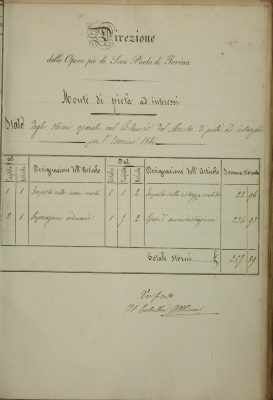 Direzione
delle Opere pie di San Paolo di Torino
Monte di pietà ad interessi
Stato degli storni operati nel Bilancio del Monte di pietà ad interessi
per l'Esercizio
al Dal
Designazione dell'Articolo Designazione dell'Articolo Somma stornata
1 1 Imposta sulla mani morte 1 1 2 Imposta sulla ricchezza mobile 22 96
2 1 Riparazioni ordinarie 1 7 2 Spese d'amministrazione 234 93
Totale storni L 257 89
Il